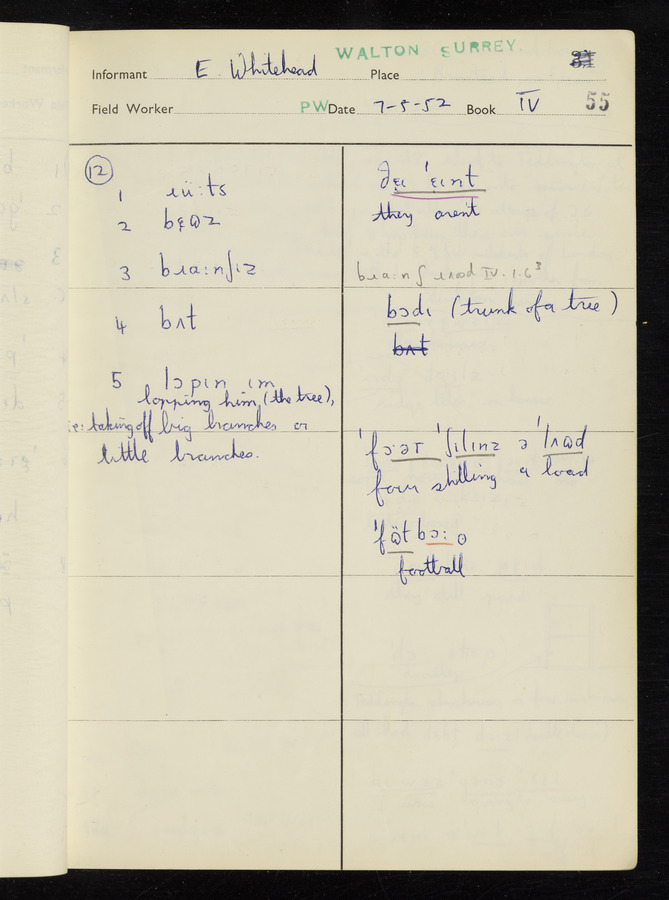 WALTON SURREY.
Informant E. Whitehead Place
Field Worker PW Date 7-5-52 Book IV 55
12
1 ɹüːts
2 bɛ̣ɷz
3 bɹɑːnʃɪz
4 bʌt
5 lɔpɪn ɪm
lopping him, (the tree),
ie: taking off big branches or
little branches.
ðɛ̣ɪ 'ɛ̣ɪnt
they aren't
bɹɑːnʃ ɹɪɷd IV.1.6³
bɔdɪ (trunk of a tree)
bʌt
'fɔ̈ər 'ʃɪlɪnz ə 'lʌɷd
four shilling a load
'fɷ̈tbɔːo
football